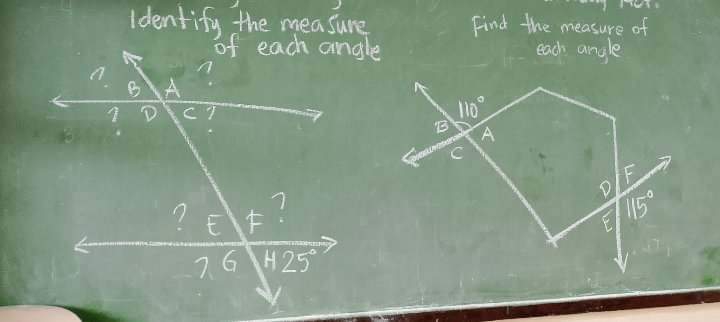 Identify the measure
of each angle
? ?
B A
? D C ?
? E F ?
? G H 25°
Find the measure of
each angle
110°
B A
C
D F
E 115°